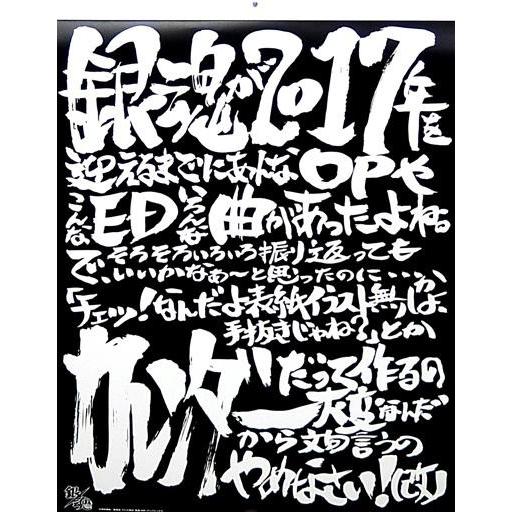 銀魂が2017年を
迎えるまでにあんなOPや
こんなEDいろんな曲があったよね
で、そろそろいろいろ振り返っても
いいかなぁ〜と思ったのに…
「チェッ!なんだよ表紙イラスト無しかよ、
手抜きじゃね?」とか
カレンダーだって作るの
大変なんだ
から文句言うの
やめなさい!(改)
銀魂